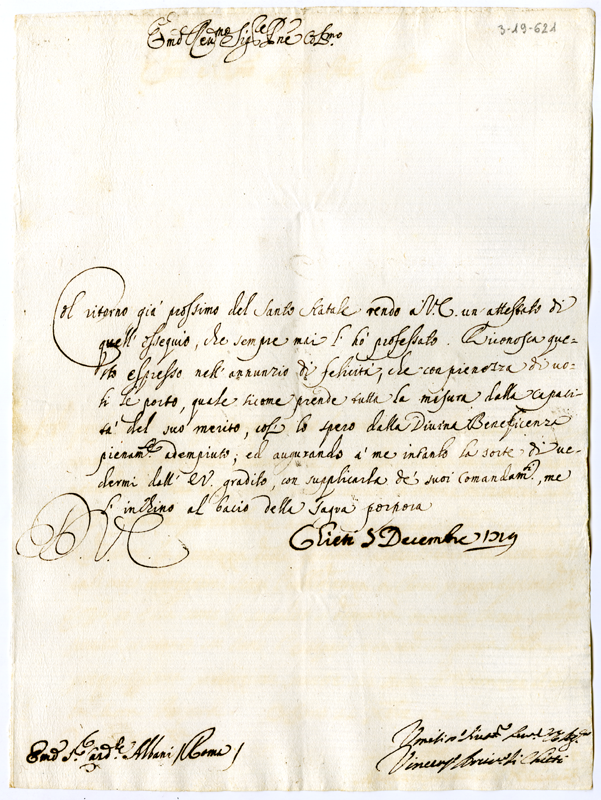 3-19-621
Em.o e Reu.mo Sig.re P.ne Col.mo
Col ritorno già prossimo del Santo Natale rendo à V.E. un attestato di
quell'ossequio, che sempre mai l'hò professato. Riconosca que-
sto espresso nell'annunzio di felicità, che con pienezza di uo-
ti le porto, quale sicome prende tutta la misura dalla capaci-
tà del suo merito, così lo spero dalla Diuina Beneficenza
pienam.te adempiuto; ed augurando à me intanto la sorte di ue-
dermi dall'E.V. gradito, con supplicarla de' suoi Comandam.ti, me
l'inchino al bacio della Sagra porpora
D. V. E.
Chieti 5 Decembre 1719
Em.o S.r Card.le Albani / Roma /
Vmilis.o
Vincenzo Arciu.o di Chieti